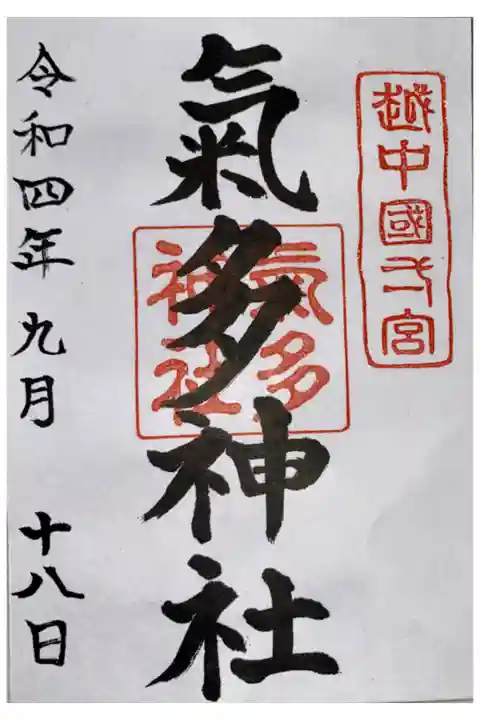 越中國弌宮
氣多神社
氣多
神社
令和四年九月 十八日